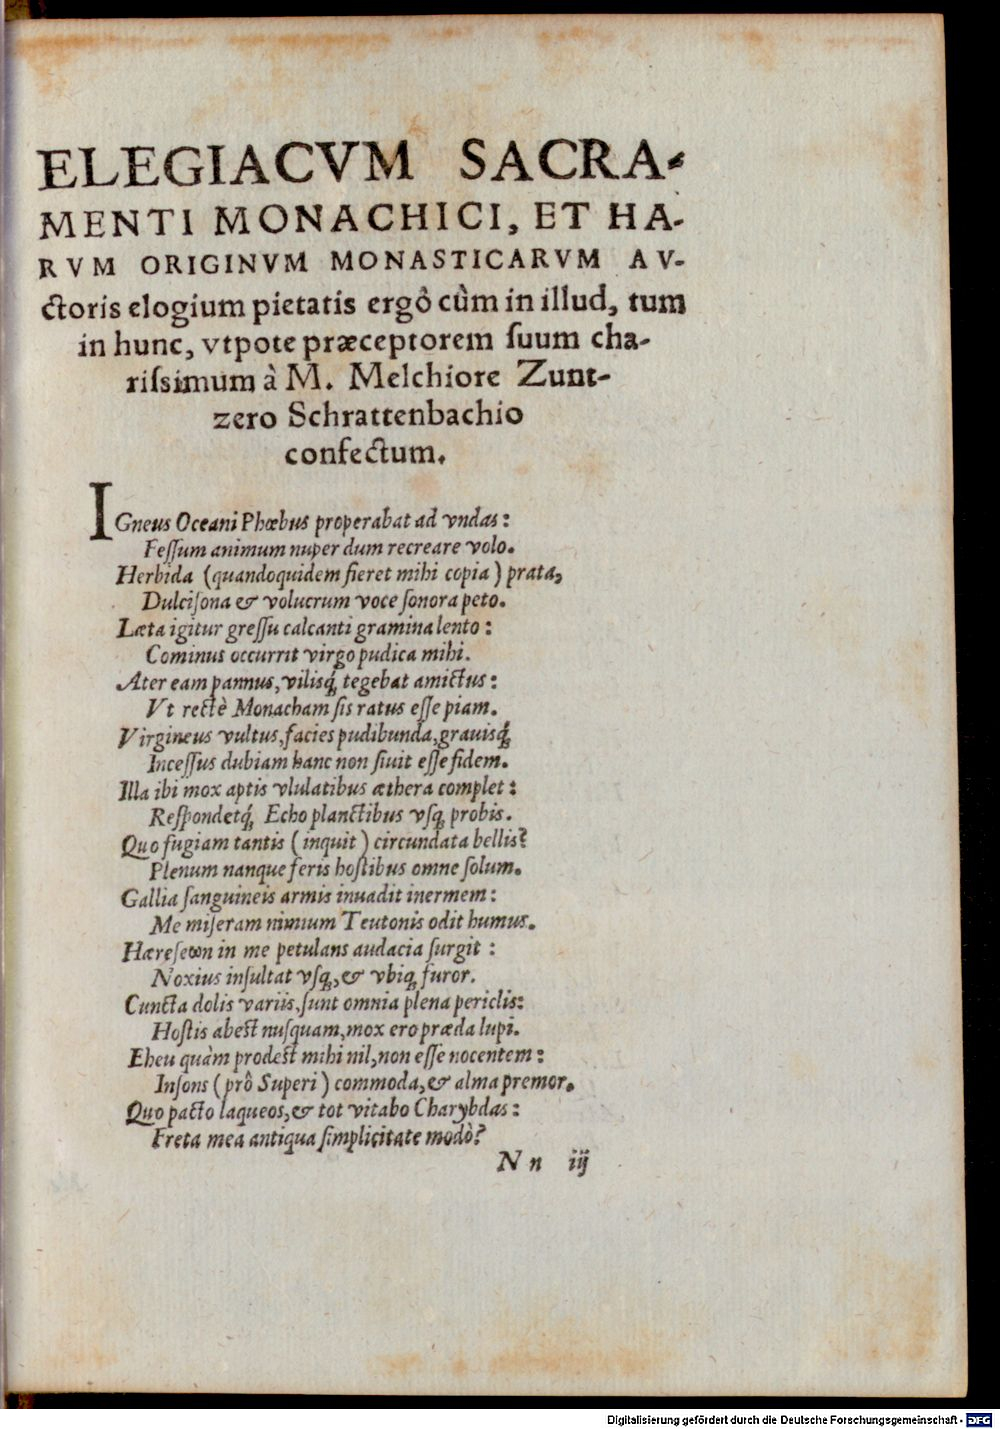 ELEGIACVM SACRA-
MENTI MONACHICI, ET HA-
RVM ORIGINVM MONASTICARVM AV-
ctoris elogium pietatis ergô cûm in illud, tum
in hunc, vtpote præceptorem ſuum cha-
riſsimum à M. Melchiore Zunt-
zero Schrattenbachio
confectum.
IGneus Oceani Phœbus properabat ad vndas:
Feſſum animum nuper dum recreare volo.
Herbida (quandoquidem fieret mihi copia) prata,
Dulciſona & volucrum voce ſonora peto.
Læta igitur greſſu calcanti gramina lento:
Cominus occurrit virgo pudica mihi.
Ater eam pannus, vilisq́; tegebat amictus:
Vt rectè Monacham ſis ratus eſſe piam.
Virgineus vultus, facies pudibunda, grauisq́;
Inceſſus dubiam hanc non ſiuit eſſe fidem.
Illa ibi mox aptis vlulatibus æthera complet:
Reſpondetq́; Echo planctibus vſq; probis.
Quo fugiam tantis (inquit) circundata bellis?
Plenum nanque feris hoſtibus omne ſolum.
Gallia ſanguineis armis inuadit inermem:
Me miſeram nimium Teutonis odit humus.
Hæreſeωn in me petulans audacia ſurgit:
Noxius inſultat vſq;, & vbiq; furor.
Cuncta dolis variis, ſunt omnia plena periclis:
Hoſtis abest nuſquam, mox ero præda lupi.
Eheu quàm prodest mihi nil, non eſſe nocentem:
Inſons (prô Superi) commoda, & alma premor.
Quo pacto laqueos, & tot vitabo Charybdas:
Freta mea antiqua ſimplicitate modò?
Nn iij
Digitalisierung gefördert durch die Deutsche Forschungsgemeinschaft - DFG